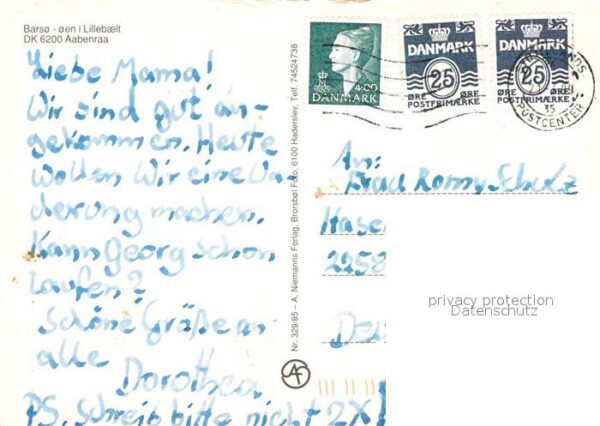 Barsø - øen i Lillebælt
DK 6200 Aabenraa
Liebe Mama!
Wir sind gut an-
gekommen. Heute
wollen Wir eine Wa
derung machen.
Kann Georg schon
laufen?
Schöne Grüße an
alle
Dorothea
PS. Schreib bitte nicht 2X
Nr. 329/85 – A. Niemanns Forlag, Brorsbøl Foto, 6100 Haderslev, Telf. 74524738
4.00
DANMARK
DANMARK
25
ØRE ØRE
POSTFRIMÆRKE
DANMARK
25
ØRE ØRE
POSTFRIMÆRKE
POSTCENTER
35
An:
Frau Romy Schulz
Hase
2258
privacy protection
Datenschutz